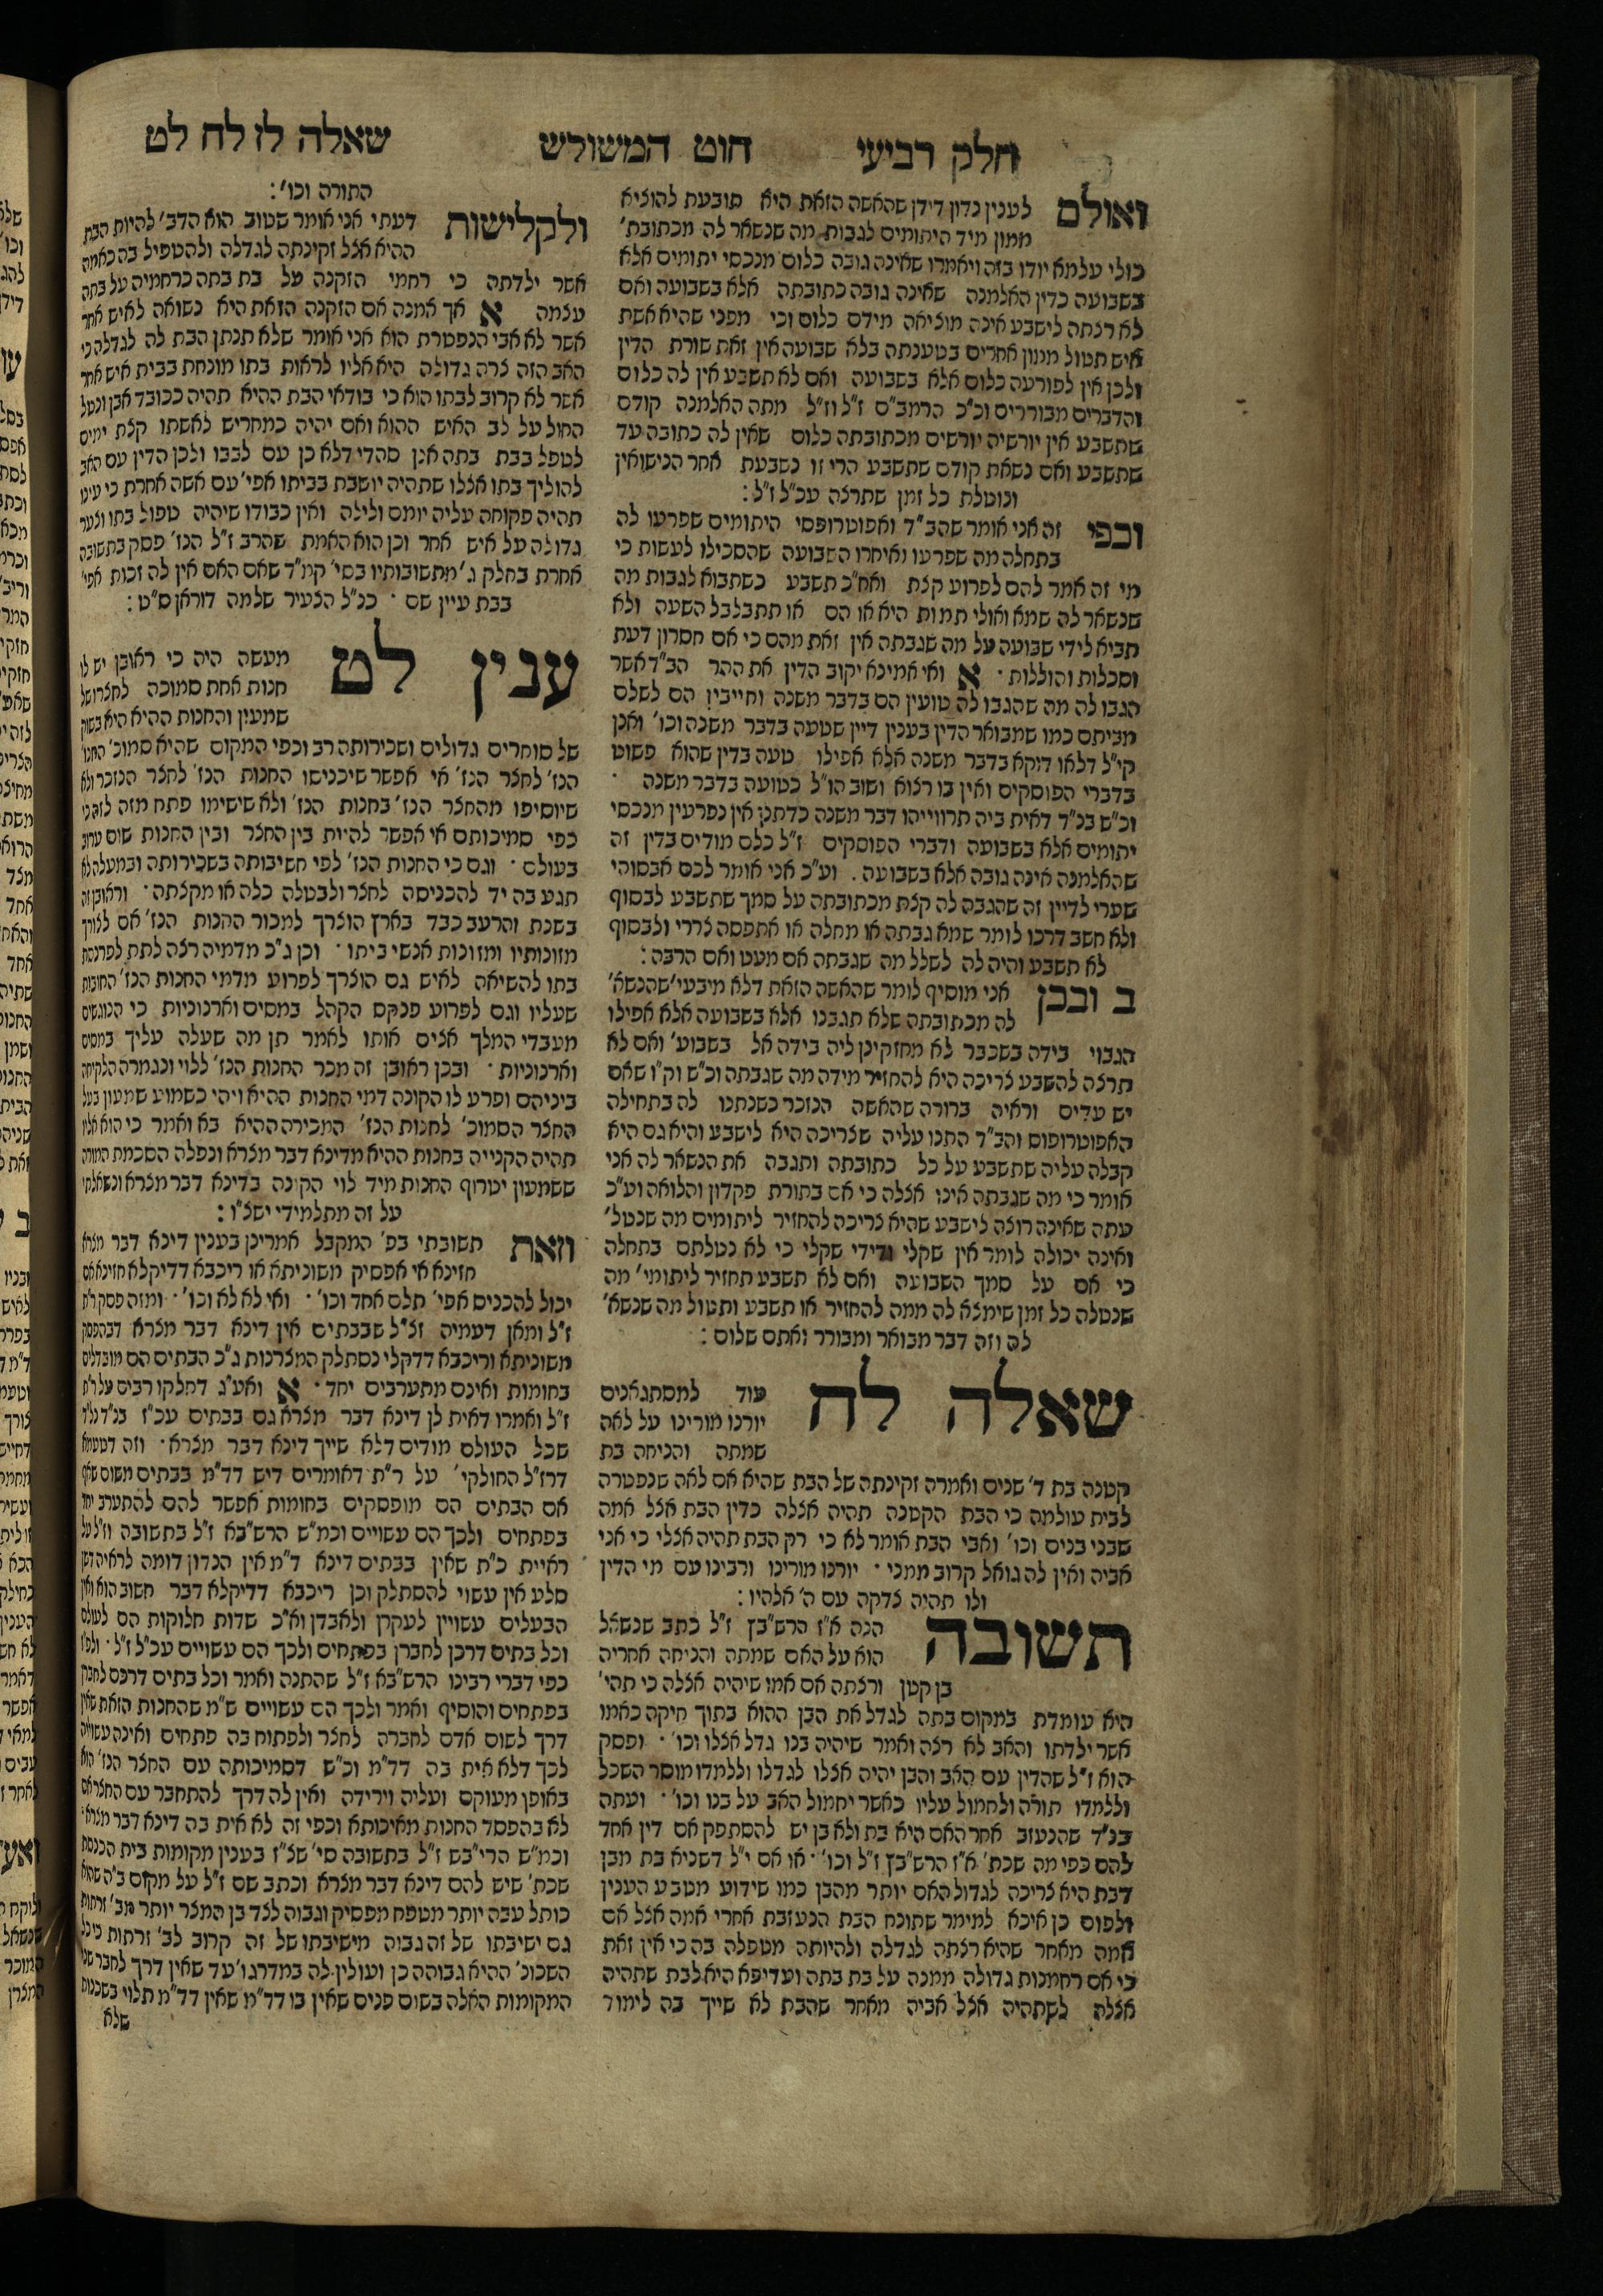 חלק רביעי חוט המשולש שאלה לז לח לט
ואולם לענין נדון דידן שהאשה הזאת היא תובעת להוציא
ממון מיד היתומים לגבות מה שנשאר לה מכתובת'
כולי עלמא יודו בזה ויאמרו שאינה גובה כלום מנכסי יתומים אלא
בשבועה כדין האלמנה שאינה גובה כתובתה אלא בשבועה ואם
לא רצתה לישבע אינה מוציאה מידם כלום וכי מפני שהיא אשת
איש תטול ממון אחרים בטענתה בלא שבועה אין זאת שורת הדין
ולכן אין לפורעה כלום אלא בשבועה ואם לא תשבע אין לה כלום
והדברים מבוררים וכ"כ הרמב"ם ז"ל וז"ל מתה האלמנה קודם
שתשבע אין יורשיה יורשים מכתובתה כלום שאין לה כתובה עד
שתשבע ואם נשאת קודם שתשבע הרי זו נשבעת אחר הנישואין
ונוטלת כל זמן שתרצה עכ"ל ז"ל :
וכפי זה אני אומר שהב"ד ואפוטרופסי היתומים שפרעו לה
בתחלה מה שפרעו ואיחרו השבועה שהסכילו לעשות כי
מי זה אמר להם לפרוע קצת ואח"כ תשבע כשתבוא לגבות מה
שנשאר לה שמא ואולי תמות היא או הם או תתבלבל השעה ולא
תביא לידי שבועה על מה שגבתה אין זאת מהם כי אם חסרון דעת
וסכלות והוללות · א ואי אמינא יקוב הדין את ההר הב"ד אשר
הגבו לה מה שהגבו לה טועין הם בדבר משנה וחייבין הם לשלם
מביתם כמו שמבואר הדין בענין דיין שטעה בדבר משנה וכו' ואנן
קי"ל דלאו דוקא בדבר משנה אלא אפילו טעה בדין שהוא פשוט
בדברי הפוסקים ואין בו רצוא ושוב הו"ל כטועה בדבר משנה ·
וכ"ש בנ"ד דאית ביה תרווייהו דבר משנה כדתנן אין נפרעין מנכסי
יתומים אלא בשבועה ודברי הפוסקים ז"ל כלם מודים בדין זה
שהאלמנה אינה גובה אלא בשבועה . וע"כ אני אומר לכם אבסוהי
שערי לדיין זה שהגבה לה קצת מכתובתה על סמך שתשבע לבסוף
ולא חשב דרכו לומר שמא גבתה או מחלה או אתפסה צררי ולבסוף
לא תשבע והיה לה לשלל מה שגבתה אם מעט ואם הרבה :
ב ובכן אני מוסיף לומר שהאשה הזאת דלא מיבעי' שהנשא'
לה מכתובתה שלא תגבנו אלא בשבועה אלא אפילו
הגבוי בידה בשכבר לא מחזקינן ליה בידה אל בשבוע' ואם לא
תרצה להשבע צריכה היא להחזיר מידה מה שגבתה וכ"ש וק"ו שאם
יש עדים וראיה ברורה שהאשה הנזכר כשנתנו לה בתחילה
האפוטרופוס והב"ד התנו עליה שצריכה היא לישבע והיא גם היא
קבלה עליה שתשבע על כל כתובתה ותגבה את הנשאר לה אני
אומר כי מה שגבתה אינו אצלה כי אם בתורת פקדון והלואה וע"כ
עתה שאינה רוצה לישבע שהיא צריכה להחזיר ליתומים מה שנטל'
ואינה יכולה לומר אין שקלי ודידי שקלי כי לא נטלתם בתחלה
כי אם על סמך השבועה ואם לא תשבע תחזיר ליתומי' מה
שנטלה כל זמן שימצא לה ממה להחזיר או תשבע ותטול מה שנשא'
לה וזה דבר מבואר ומבורר ואתם שלום :
שאלה לח עוד למסתגאנים
יורנו מורינו על לאה
שמתה והניחה בת
קטנה בת ד' שנים ואמרה זקינתה של הבת שהיא אם לאה שנפטרה
לבית עולמה כי הבת הקטנה תהיה אצלה כדין הבת אצל אמה
שבני בנים וכו' ואבי הבת אומר לא כי רק הבת תהיה אצלי כי אני
אביה ואין לה גואל קרוב ממני · יורנו מורינו ורבינו עם מי הדין
ולו תהיה צדקה עם ה' אלהיו :
תשובה הנה א"ז הרש"בץ ז"ל כתב שנשאל
הוא על האם שמתה והניחה אחריה
בן קטן ורצתה אם אמו שיהיה אצלה כי תהי'
היא עומדת במקום בתה לגדל את הבן ההוא בתוך חיקה כאמו
אשר ילדתו והאב לא רצה ואמר שיהיה בנו גדל אצלו וכו' · ופסק
הוא ז"ל שהדין עם האב והבן יהיה אצלו לגדלו וללמדו מוסר השכל
וללמדו תורה ולחמול עליו כאשר יחמול האב על בנו וכו' · ועתה
בנ"ד שהנעזב אחר האם היא בת ולא בן יש להסתפק אם דין אחד
להם כפי מה שכת' א"ז הרש"בץ ז"ל וכו' · או אם י"ל דשניא בת מבן
דבת היא צריכה לגדול האם יותר מהבן כמו שידוע מטבע הענין
ולפום כן איכא למימר שתונח הבת הנעזבת אחרי אמה אצל אם
אמה מאחר שהיא רצתה לגדלה ולהיותה מטפלה בה כי אין זאת
כי אם רחמנות גדולה ממנה על בת בתה ועדיפא היא לבת שתהיה
אצלה לשתהיה אצל אביה מאחר שהבת לא שייך בה לימוד
התורה וכו' :
ולקלישות דעתי אני אומר שטוב הוא הדב' להיות הבת
ההיא אצל זקינתה לגדלה ולהטפיל בה כאמה
אשר ילדתה כי רחמי הזקנה על בת בתה כרחמיה על בתה
עצמה א אך אמנה אם הזקנה הזאת היא נשואה לאיש אחר
אשר לא אבי הנפטרת הוא אני אומר שלא תנתן הבת לה לגדלה כי
האב הזה צרה גדולה היא אליו לראות בתו מונחת בבית איש אחר
אשר לא קרוב לבתו הוא כי בודאי הבת ההיא תהיה ככובד אבן ונטל
החול על לב האיש ההוא ואם יהיה כמחריש לאשתו קצת ימים
לטפל בבת בתה אנן סהדי דלא כן עם לבבו ולכן הדין עם האב
להוליך בתו אצלו שתהיה יושבת בביתו אפי' עם אשה אחרת כי עינו
תהיה פקוחה עליה יומם ולילה ואין כבודו שיהיה טפול בתו וצער
גדולה על איש אחר וכן הוא האמת שהרב ז"ל הנז' פסק בתשובה
אחרת בחלק ג' מתשובותיו בסי' קמ"ד שאם האם אין לה זכות אפי'
בבת עיין שם · כנ"ל הצעיר שלמה דוראן ס"ט :
ענין לט מעשה היה כי ראובן יש לו
חנות אחת סמוכה לחצרו של
שמעון והחנות ההיא היא בשוק
של סוחרים גדולים ושכירותה רב וכפי המקום שהיא סמוכ' החנו'
הנז' לחצר הנז' אי אפשר שיכניסו החנות הנז' לחצר הנזכר ולא
שיוסיפו מהחצר הנז' בחנות הנז' ולא שישימו פתח מזה לזה כי
כפי סמיכותם אי אפשר להיות בין החצר ובין החנות שום ערוב
בעולם · וגם כי החנות הנז' לפי חשיבותה בשכירותה ובמעלה לא
תגע בה יד להכניסה לחצר ולבטלה כלה או מקצתה · וראובן זה
בשנת והרעב כבד בארץ הוצרך למכור החנות הנז' אם לצורך
מזונותיו ומזונות אנשי ביתו · וכן ג"כ מדמיה רצה לתת לפרנסת
בתו להשיאה לאיש גם הוצרך לפרוע מדמי החנות הנז' החובות
שעליו וגם לפרוע פנקס הקהל במסים וארנוניות כי הנוגשים
מעבדי המלך אצים אותו לאמר תן מה שעלה עליך במסים
וארנוניות · ובכן ראובן זה מכר החנות הנז' ללוי ונגמרה הלקיחה
ביניהם ופרע לו הקונה דמי החנות ההיא ויהי כשמוע שמעון בעל
החצר הסמוכ' לחנות הנז' המכירה ההיא בא ואמר כי הוא אליו
תהיה הקנייה בחנות ההיא מדינא דבר מצרא ונפלה הסכמת המורה
ששמעון יטרוף החנות מיד לוי הקונה בדינא דבר מצרא ונשאלתי
על זה מתלמידי ישצ"ו :
וזאת תשובתי בפ' המקבל אמרינן בענין דינא דבר מצרא
חזינא אי אפסיק משוניתא או ריכבא דדיקלא חזינא אם
יכול להכניס אפי' תלם אחד וכו' · ואי לא לא וכו' · ומזה פסק ר"ת
ז"ל ומאן דעמיה זצ"ל שבבתים אין דינא דבר מצרא דבהפסק
משוניתא וריכבא דדקלי נסתלק המצרנות ג"כ הבתים הם מובדלים
בחומות ואינם מתערבים יחד · א ואע"ג דחלקו רבים על ר"ת
ז"ל ואמרו דאית לן דינא דבר מצרא גם בבתים עכ"ז בנ"ד נל"ד
שכל העולם מודים דלא שייך דינא דבר מצרא · וזה דטעמא
דרז"ל החולקי' על ר"ת דאומרים דיש דד"מ בבתים משום שאף
אם הבתים הם מופסקים בחומות אפשר להם להתערב יחד
בפתחים ולכך הם עשויים וכמ"ש הרש"בא ז"ל בתשובה וז"ל על
ראיית כ"ת שאין בבתים דינא ד"מ אין הנדון דומה לראיה דשן
סלע אין עשוי להסתלק וכן ריכבא דדיקלא דבר חשוב הוא ואין
הבעלים עשויין לעקרן ולאבדן וא"כ שדות חלוקות הם לעולם
וכל בתים דרכן לחברן בפתחים ולכך הם עשויים עכ"ל ז"ל · ולפ"ז
כפי דברי רבינו הרש"בא ז"ל שהתנה ואמר וכל בתים דרכם לחברן
בפתחים והוסיף ואמר ולכך הם עשויים ש"מ שהחנות הזאת שאין
דרך לשום אדם לחברה לחצר ולפתוח בה פתחים ואינה עשויה
לכך דלא אית בה דד"מ וכ"ש דסמיכותה עם החצר הנז' הוא
באופן מעוקם ועליה וירידה ואין לה דרך להתחבר עם החצר אם
לא בהפסד החנות מאיכותא וכפי זה לא אית בה דינא דבר מצרא ·
וכמ"ש הרי"בש ז"ל בתשובה סי' שצ"ז בענין מקומות בית הכנסת
שכת' שיש להם דינא דבר מצרא וכתב שם ז"ל על מקום ב"ה שהוא
כותל עבה יותר מטפח מפסיק וגבוה לצד בן המצר יותר מב' זרתות
גם ישיבתו של זה גבוה מישיבתו של זה קרוב לב' זרתות כי כל
השכונ' ההיא גבוהה כן ועולין לה במדרגו' עד שאין דרך לחבר שני
המקומות האלה בשום פנים שאין בו דד"מ שאין דד"מ תלוי בשכנות
שלא